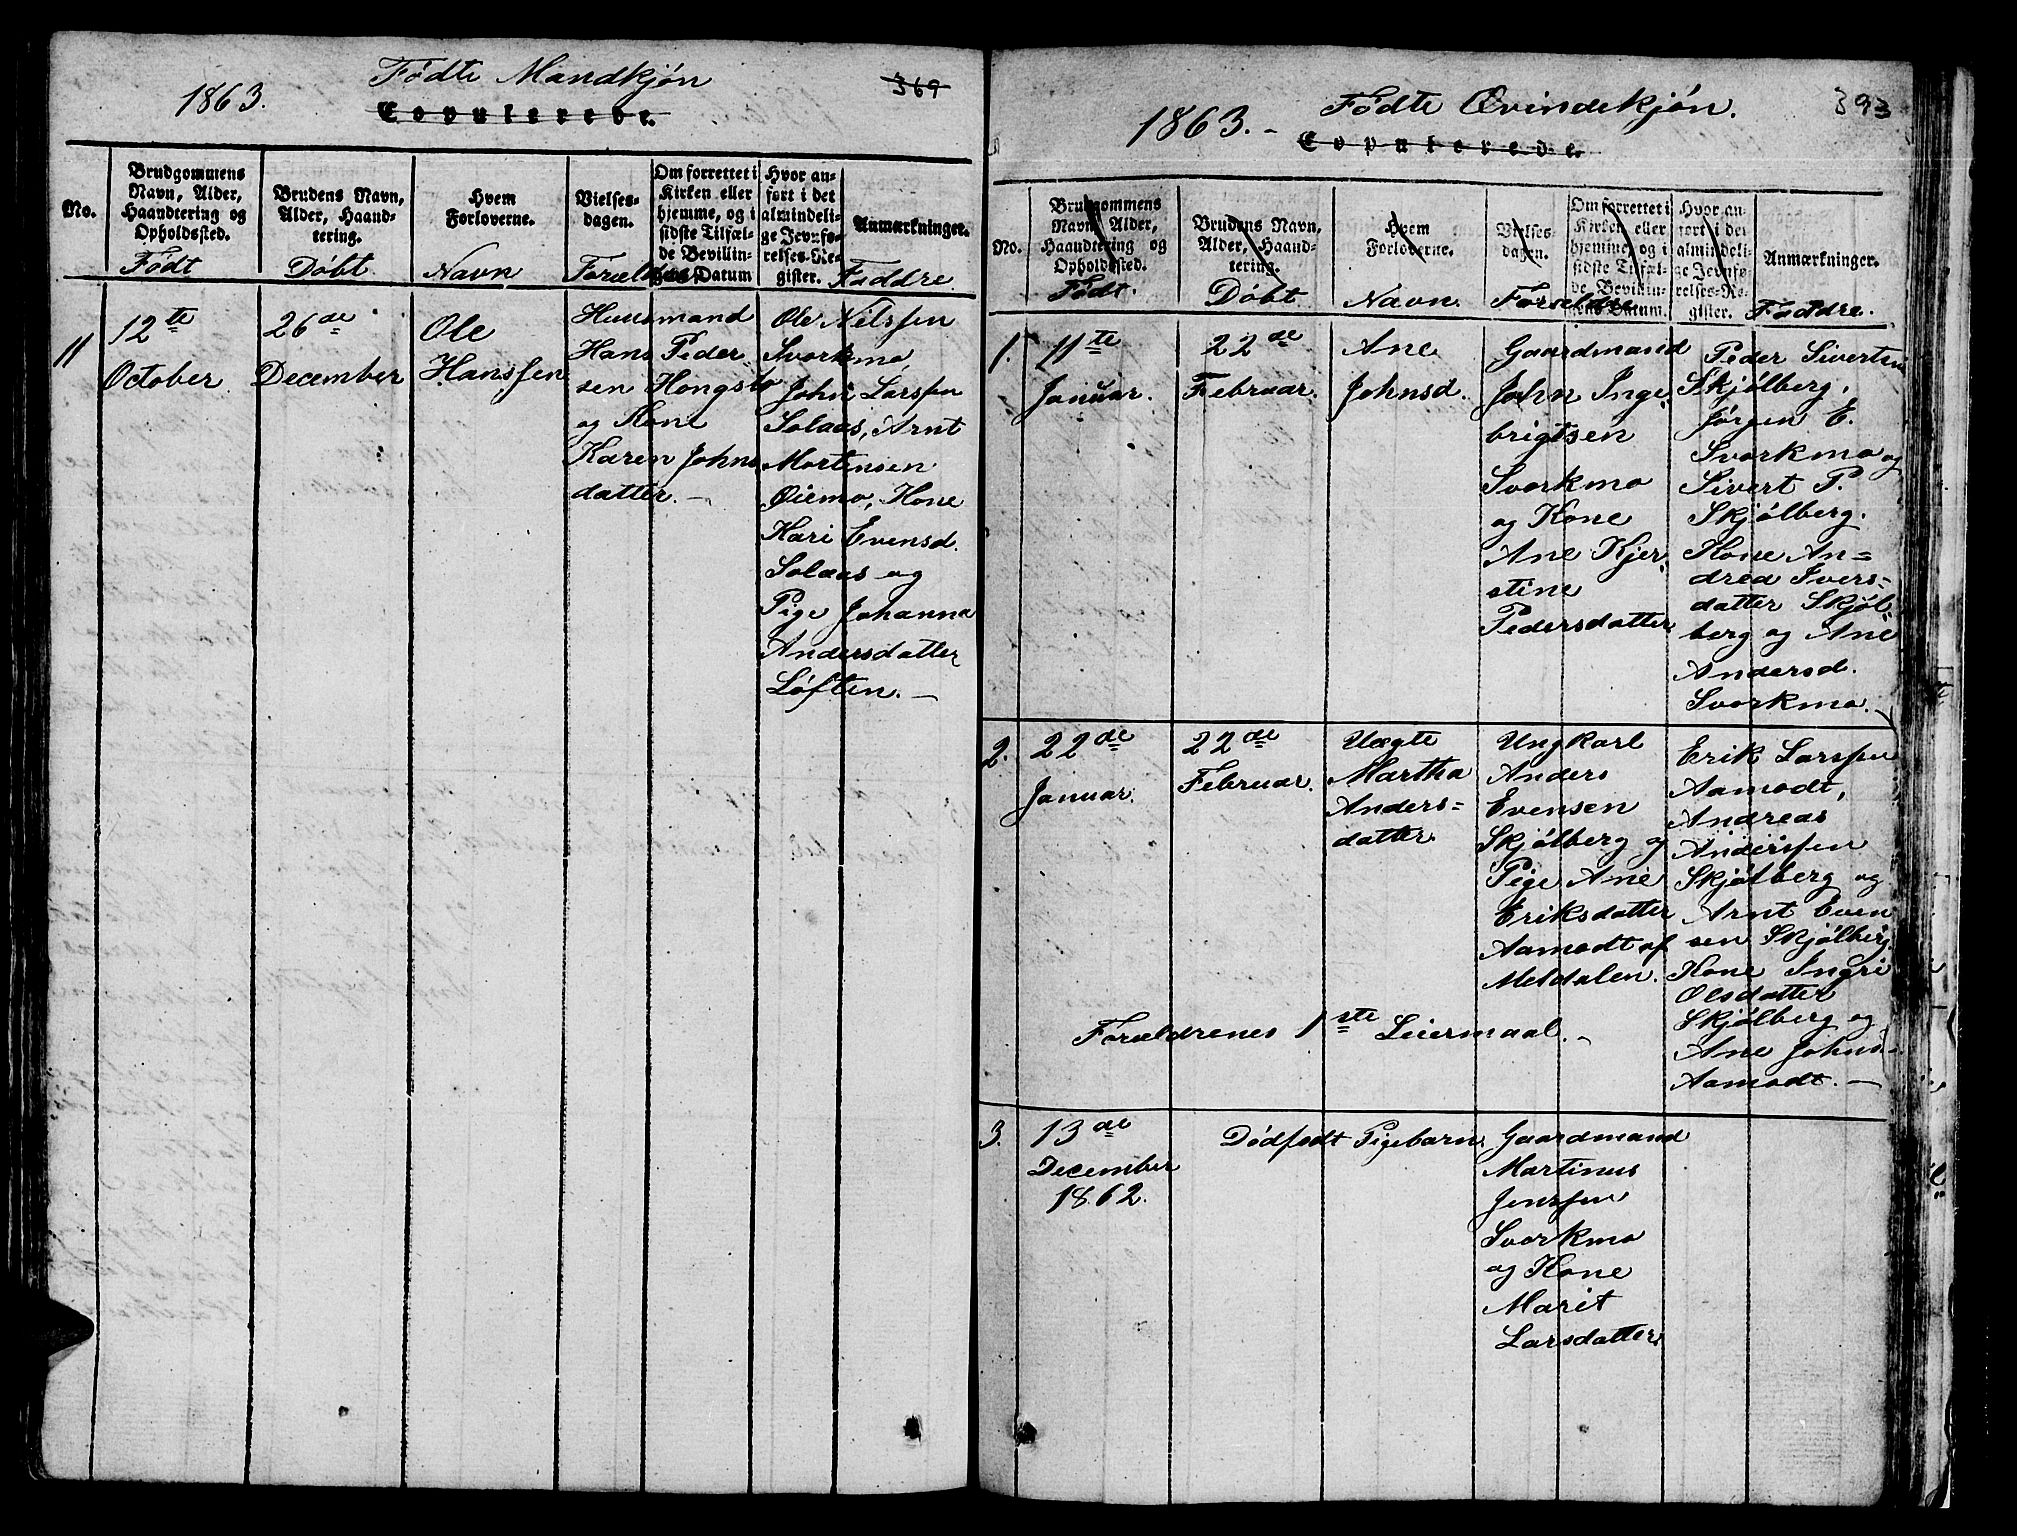 1863.
Fødte Mandkjøn
369
Copulerede.
No.
Brudgommens
Navn, Alder,
Haandtering og
Opholdssted.
Født
Brudens Navn,
Alder, Haand-
tering.
Døbt
Hvem
Forloverne.
Navn
Vielses-
dagen.
Forældre
Om forrettet i
Kirken eller
hjemme, og i
sidste Tilfæl-
de Bevillin-
gens Datum
Hvor an-
ført i det
almindeli-
ge Jevnfø-
relses-Re-
gister.
Anmærkninger.
Faddre
11
12te
October
26de
December
Ole
Hanssen
Huusmand
Hans Peder
sen Hongslo
og Kone
Karen Johns
datter. -
Ole Nilssen
Svorkmo
John Larssen
Solaas, Arnt
Mortensen
Øiemo, Kone
Kari Evensd.
Solaas og
Pige Johanna
Andersdatter
Løften. -
1863. -
Fødte Qvindekjøn.
393
Copulerede.
No.
Brudgommens
Navn, Alder,
Haandtering og
Opholdssted.
Født.
Brudens Navn,
Alder, Haand-
tering.
Døbt
Hvem
Forloverne.
Navn.
Vielses-
dagen.
Forældre
Om forrettet i
Kirken eller
hjemme, og i
sidste Tilfæl-
de Bevillin-
gens Datum.
Hvor an-
ført i det
almindeli-
ge Jevnfø-
relses-Re-
gister.
Anmærkninger.
Faddre.
1.
11te
Januar.
22de
Februar.
Ane
Johnsd.
Gaardmand
John Inge
brigtsen
Svorkmo
og Kone
Ane Kjer
stine
Pedersdatter
Peder Sivertsen
Skjølberg,
Jørgen E.
Svorkmo og
Sivert P.
Skjølberg.
Kone An=
drea Ivers=
datter Skjøl
berg og Ane
Andersd.
Svorkmo. -
2.
22de
Januar.
22de
Februar.
Uægte
Martha
Anders=
datter
Ungkarl
Anders
Evensen
Skjølberg og
Pige Ane
Eriksdatter
Aamodt af
Meldalen.
Erik Larssen
Aamodt,
Andreas
Anderssen
Skjølberg og
Arnt Even
sen Skjølberg,
Kone Ingri
Olsdatter
Skjølberg og
Ane Johns-
Aamodt. -
Forældrenes 1ste Leiermaal. -
3.
13de
December
1862.
Dødfødt Pigebarn.
Gaardmand
Martinus
Jenssen
Svorkmo
og Kone
Marit
Larsdatter